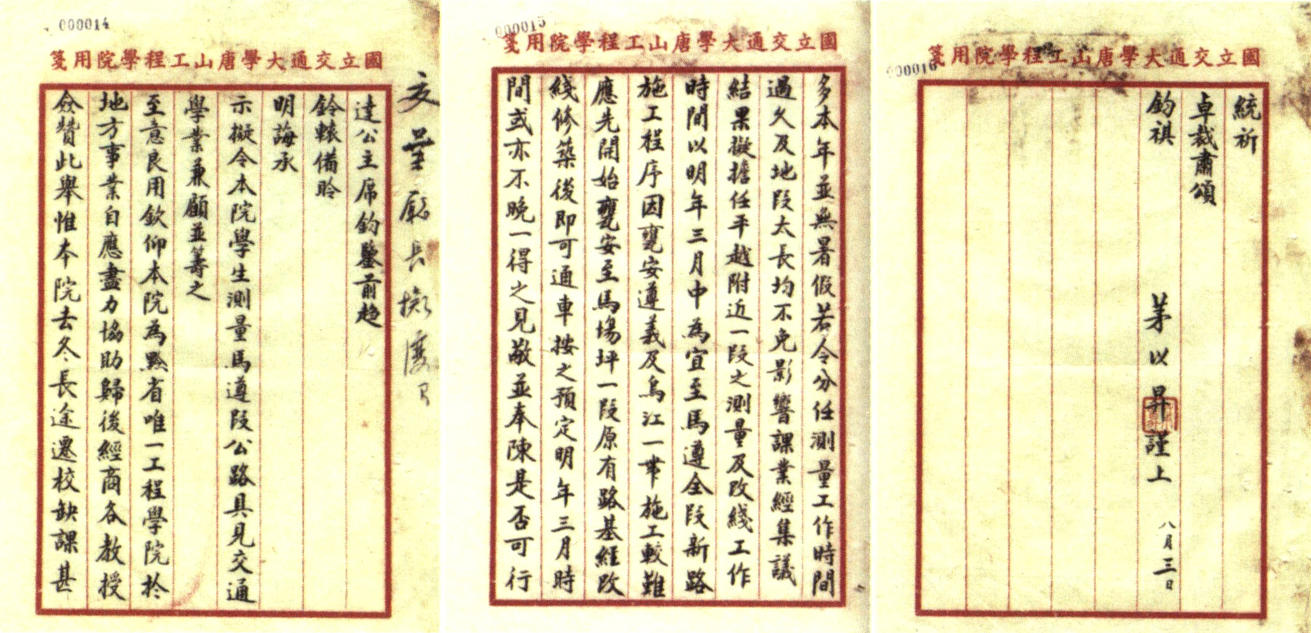 000014
國立交通大學唐山工程學院用箋
交葉廳長擬復
達公主席鈞鑒前趨
鈴轅備聆
明誨承
示擬令本院學生測量馬遵段公路具見交通
學業兼顧並籌之
至意良用欽仰本院為黔省唯一工程學院於
地方事業自應盡力協助歸後經商各教授
僉贊此舉惟本院去冬長途遷校缺課甚
000015
國立交通大學唐山工程學院用箋
多本年並無暑假若令分任測量工作時間
過久及地段太長均不免影響課業經集議
結果擬擔任平越附近一段之測量及改綫工作
時間以明年三月中為宜至馬遵全段新路
施工程序因甕安遵義及烏江一帶施工較難
應先開始甕安至馬場坪一段原有路基經改
綫修築後即可通車按之預定明年三月時
間或亦不晚一得之見敬並奉陳是否可行
000016
國立交通大學唐山工程學院用箋
統祈
卓裁肅頌
鈞祺
茅以昇謹上
八月三日